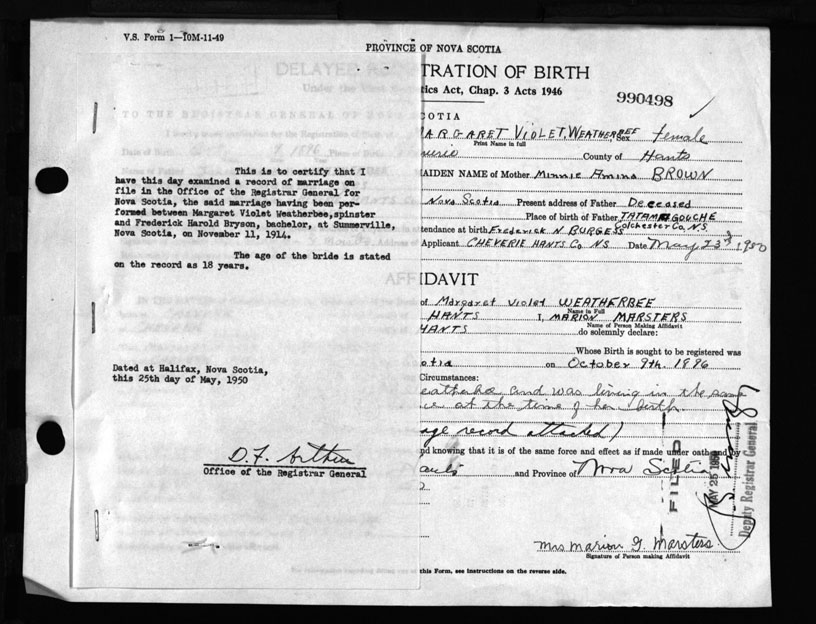 V.S. Form 1—10M-11-49
PROVINCE OF NOVA SCOTIA
TRATION OF BIRTH
tics Act, Chap. 3 Acts 1946
990498
COTIA
ARGARET VIOLET, WEATHERBEE Sex female
Print Name in full
County of Hants
AIDEN NAME of Mother Minnie Amina BROWN
Nova Scotia Present address of Father Deceased
Place of birth of Father TATAMAGOUCHE
Colchester Co, N.S.
ttendance at birth Frederick N BURGESS
Applicant CHEVERIE HANTS Co NS Date May 23rd 1950
This is to certify that I
have this day examined a record of marriage on
file in the Office of the Registrar General for
Nova Scotia, the said marriage having been per-
formed between Margaret Violet Weatherbee, spinster
and Frederick Harold Bryson, bachelor, at Summerville,
Nova Scotia, on November 11, 1914.
The age of the bride is stated
on the record as 18 years.
Dated at Halifax, Nova Scotia,
this 25th day of May, 1950
D. F. Arthur
Office of the Registrar General
IDAVIT
of Margaret Violet WEATHERBEE
Name in Full
HANTS I, MARION MARSTERS
Name of Person Making Affidavit
HANTS do solemnly declare:
Whose Birth is sought to be registered was
otia on October 9th. 1896
Circumstances:
eatherbee, and was living in the same
ce at the time of her birth.
age record attached)
nd knowing that it is of the same force and effect as if made under oath and by
and Province of Nova Scotia
FILED
MAY 25 1950
Deputy Registrar General
Mrs Marion G. Marsters
Signature of Person making Affidavit
this Form, see instructions on the reverse side.